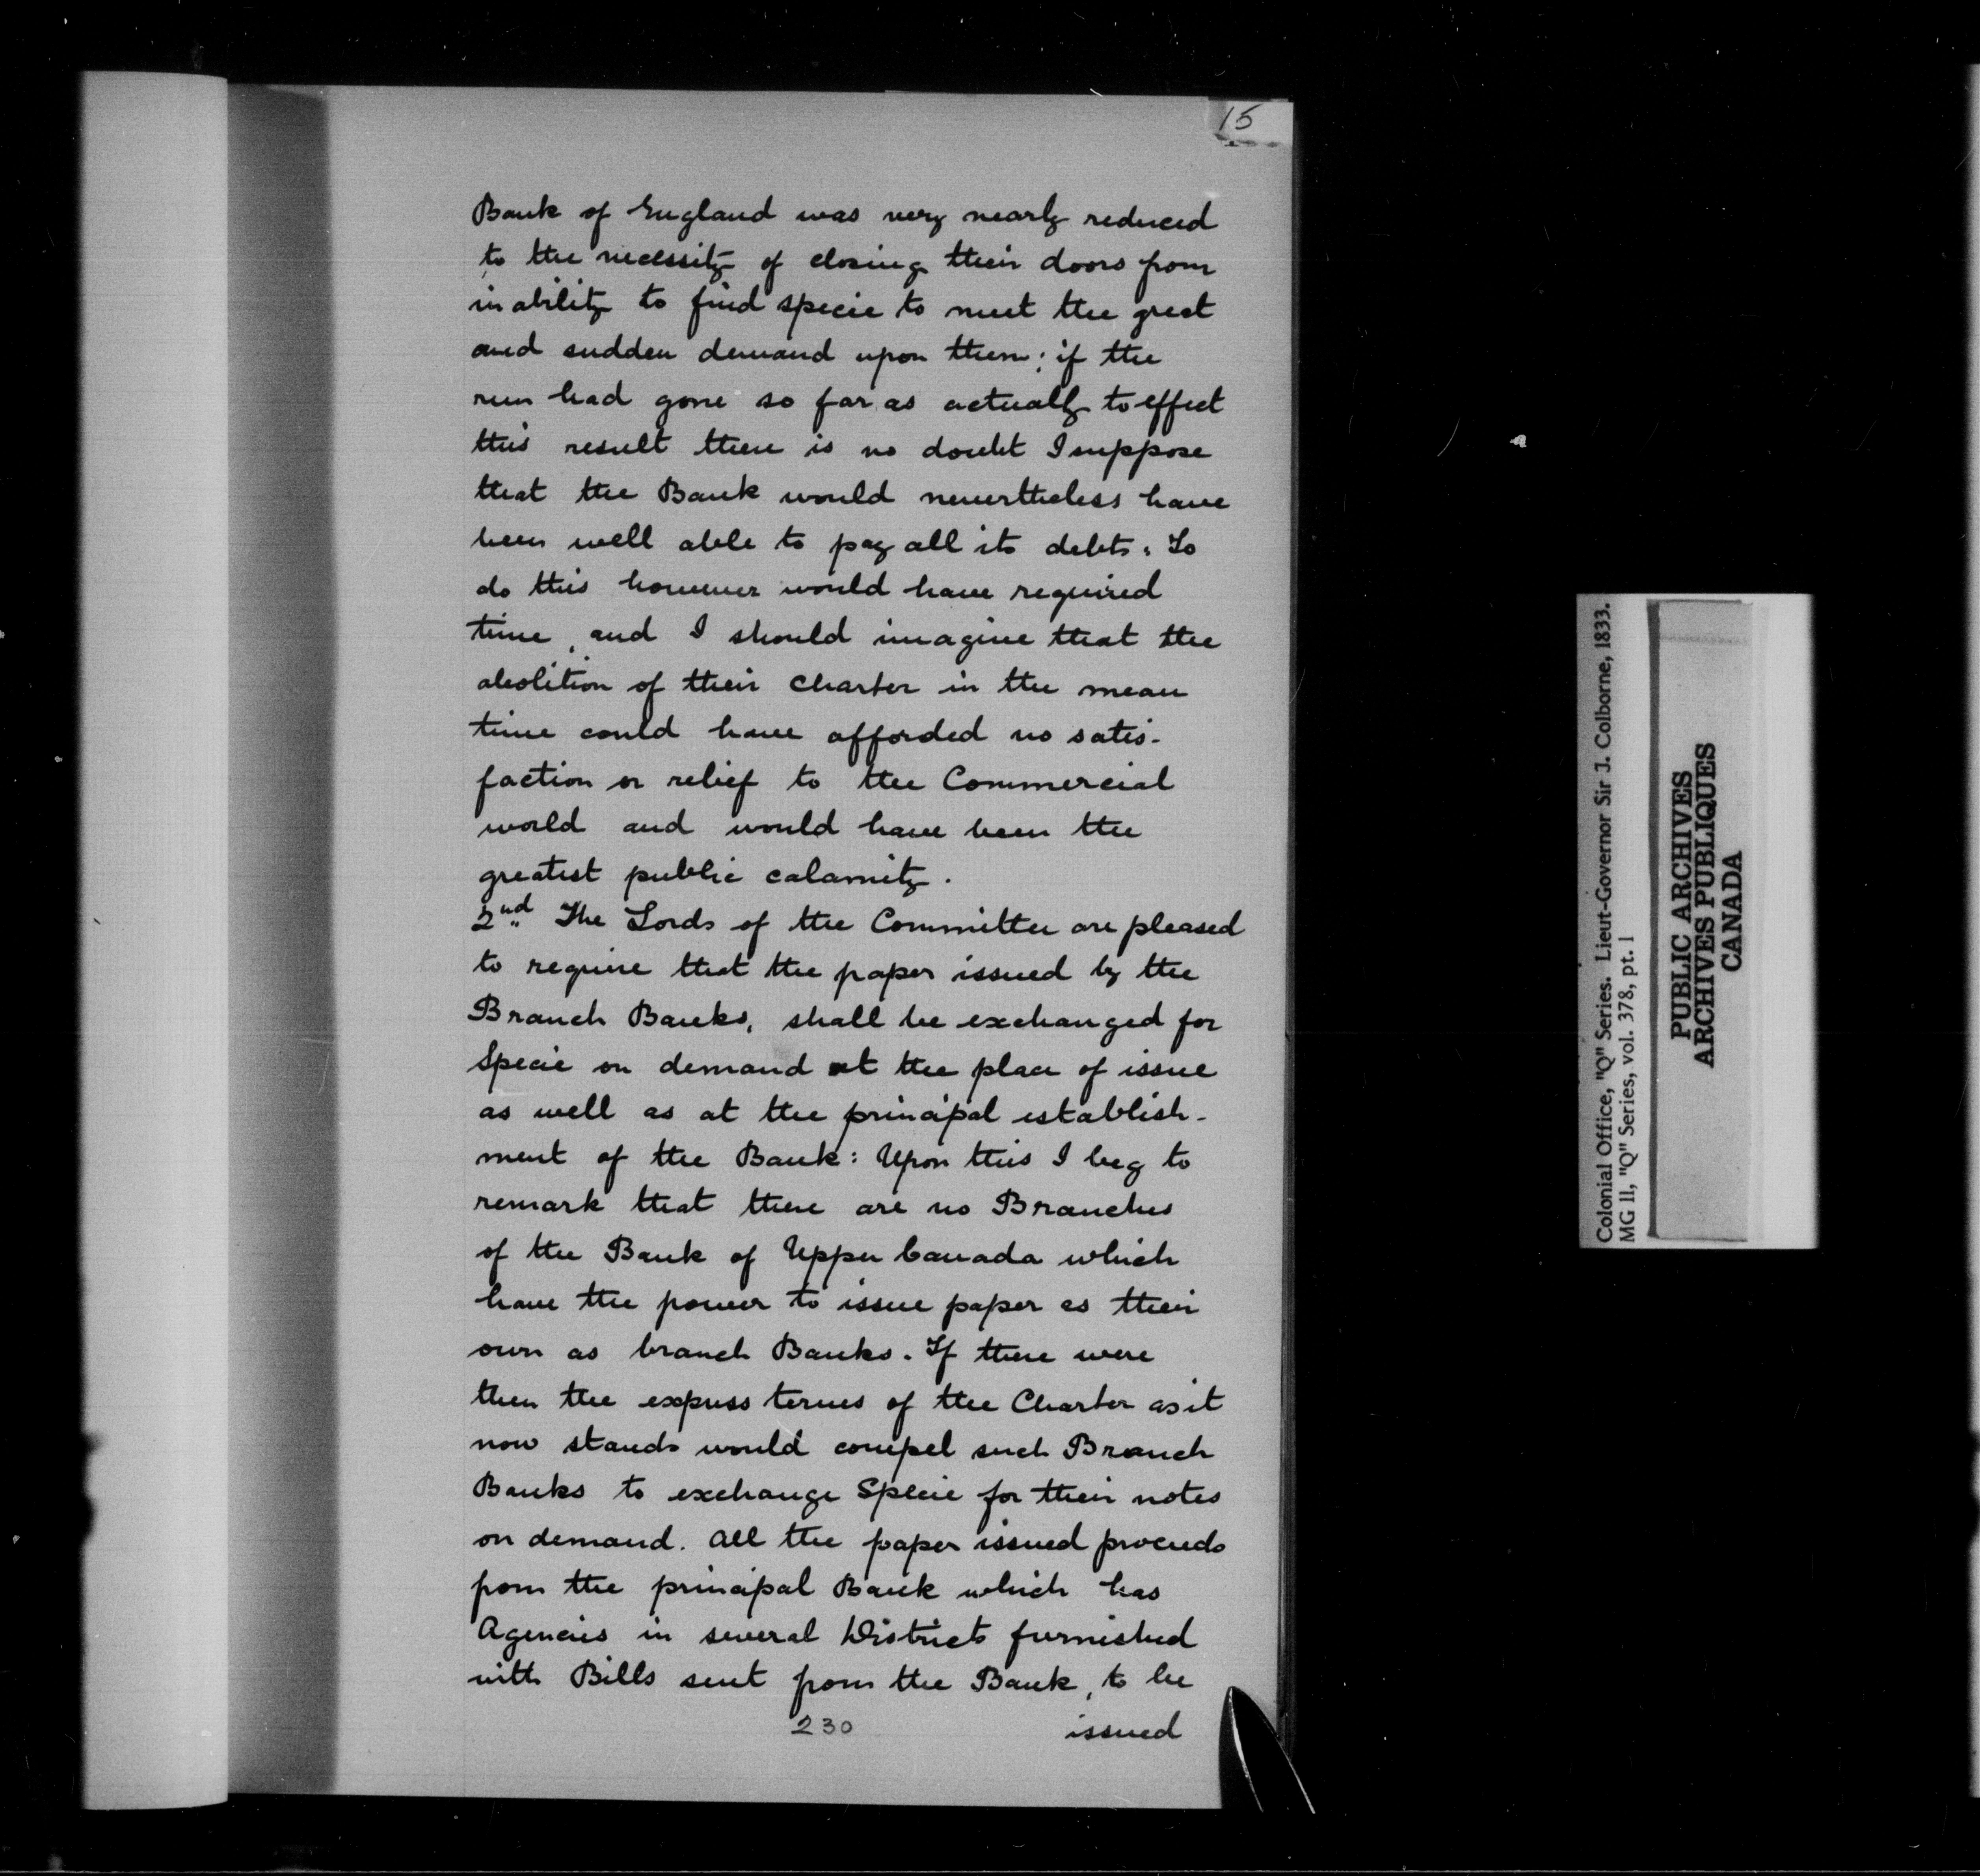 15
Bank of England was very nearly reduced
to the necessity of closing their doors from
inability to find specie to meet the great
and sudden demand upon them; if the
run had gone so far as actually to effect
this result there is no doubt I suppose
that the Bank would nevertheless have
been well able to pay all its debts. To
do this however would have required
time, and I should imagine that the
abolition of their Charter in the mean
time could have afforded no satis-
faction or relief to the Commercial
world and would have been the
greatest public calamity.
2nd The Lords of the Committee are pleased
to require that the paper issued by the
Branch Banks, shall be exchanged for
Specie on demand at the place of issue
as well as at the principal establish-
ment of the Bank: Upon this I beg to
remark that there are no Branches
of the Bank of Upper Canada which
have the power to issue paper as their
own as branch Banks. If there were
then the express terms of the Charter as it
now stands would compel such Branch
Banks to exchange Specie for their notes
on demand. All the paper issued proceeds
from the principal Bank which has
Agencies in several Districts furnished
with Bills sent from the Bank, to be
230 issued
Colonial Office, "Q" Series. Lieut-Governor Sir J. Colborne, 1833.
MG 11, "Q" Series, vol. 378, pt. 1
PUBLIC ARCHIVES
ARCHIVES PUBLIQUES
CANADA